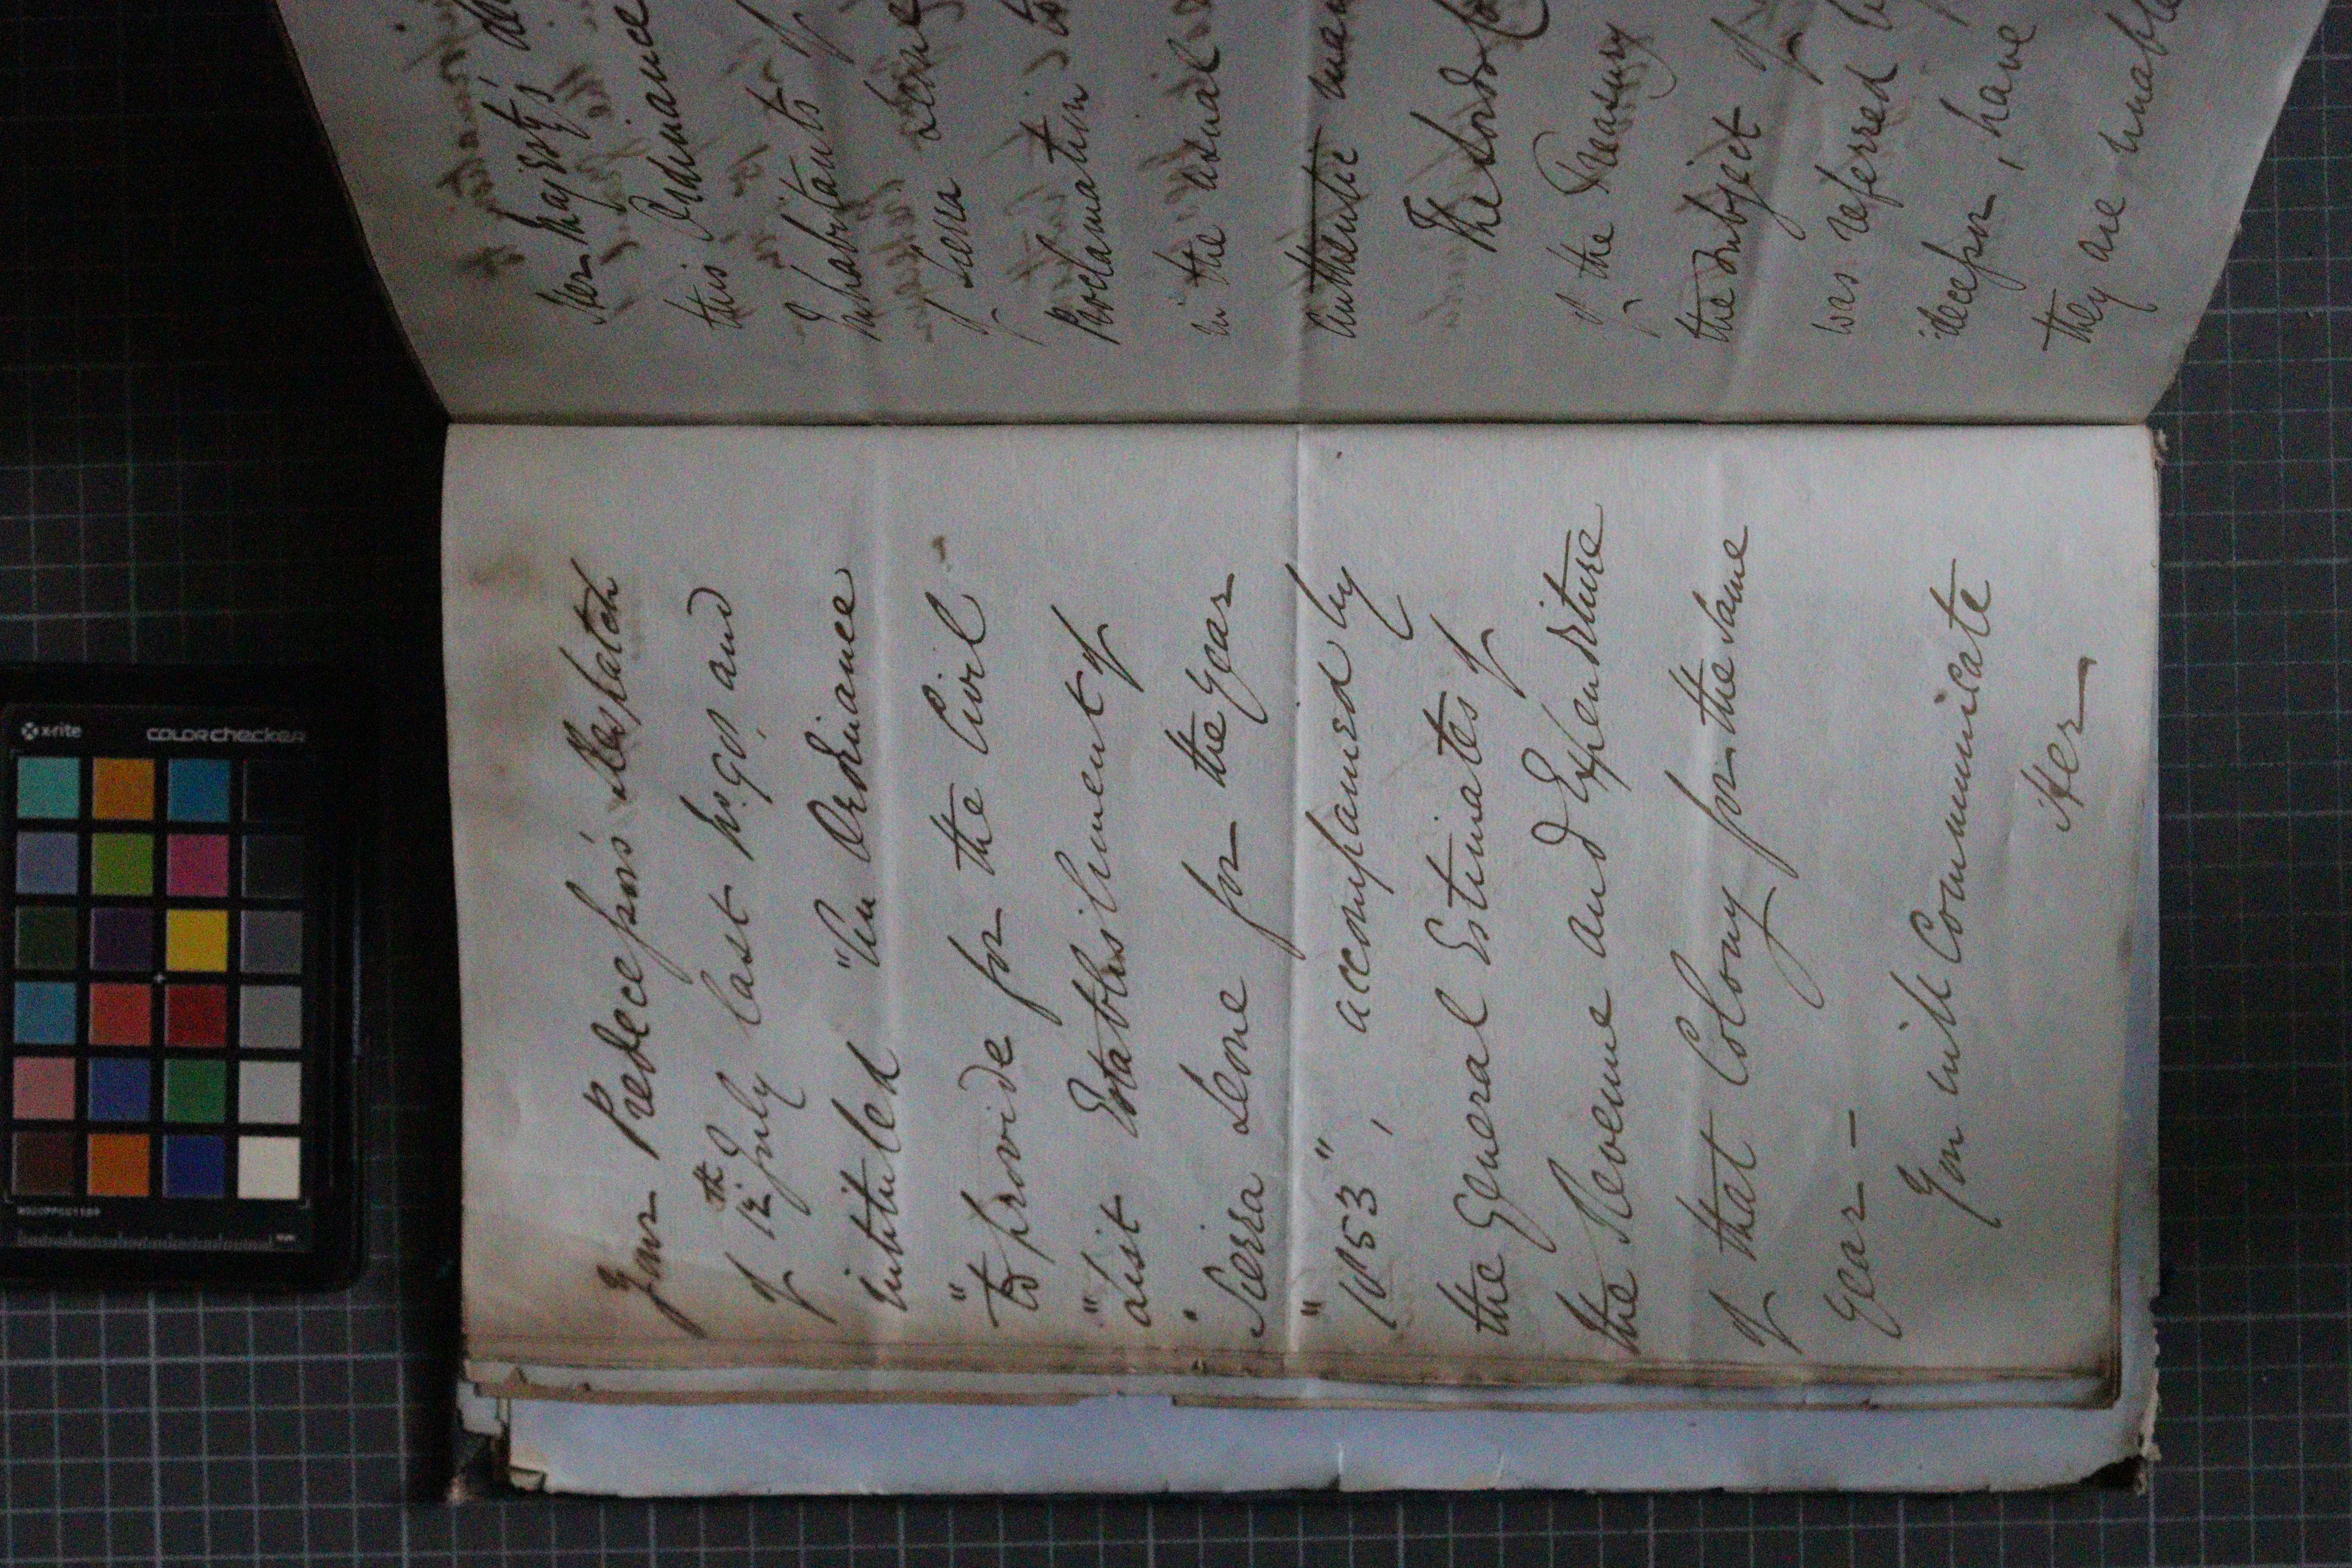 your Predecessor's Despatch
of 12th July last No. 90, and
intituled "An Ordinance
"to provide for the Civil
"List Establishment of
"Sierra Leone for the year
"1853", accompanied by
the General Estimates of
the Revenue and Expenditure
of that Colony for the same
year—
You will Communicate
Her
Her Majesty's
this Ordinance
Inhabitants of
of Sierra Leone
Proclamation
in the usual
authentic
The Lords
of the Treasury
the subject of
was referred
decessor, have
they are unable
x-rite
colorchecker